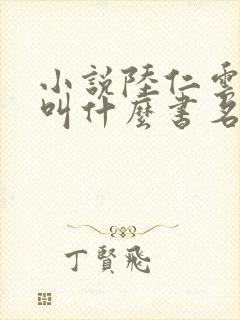 小說陸仁雲
叫什麼書名
丁賢飛